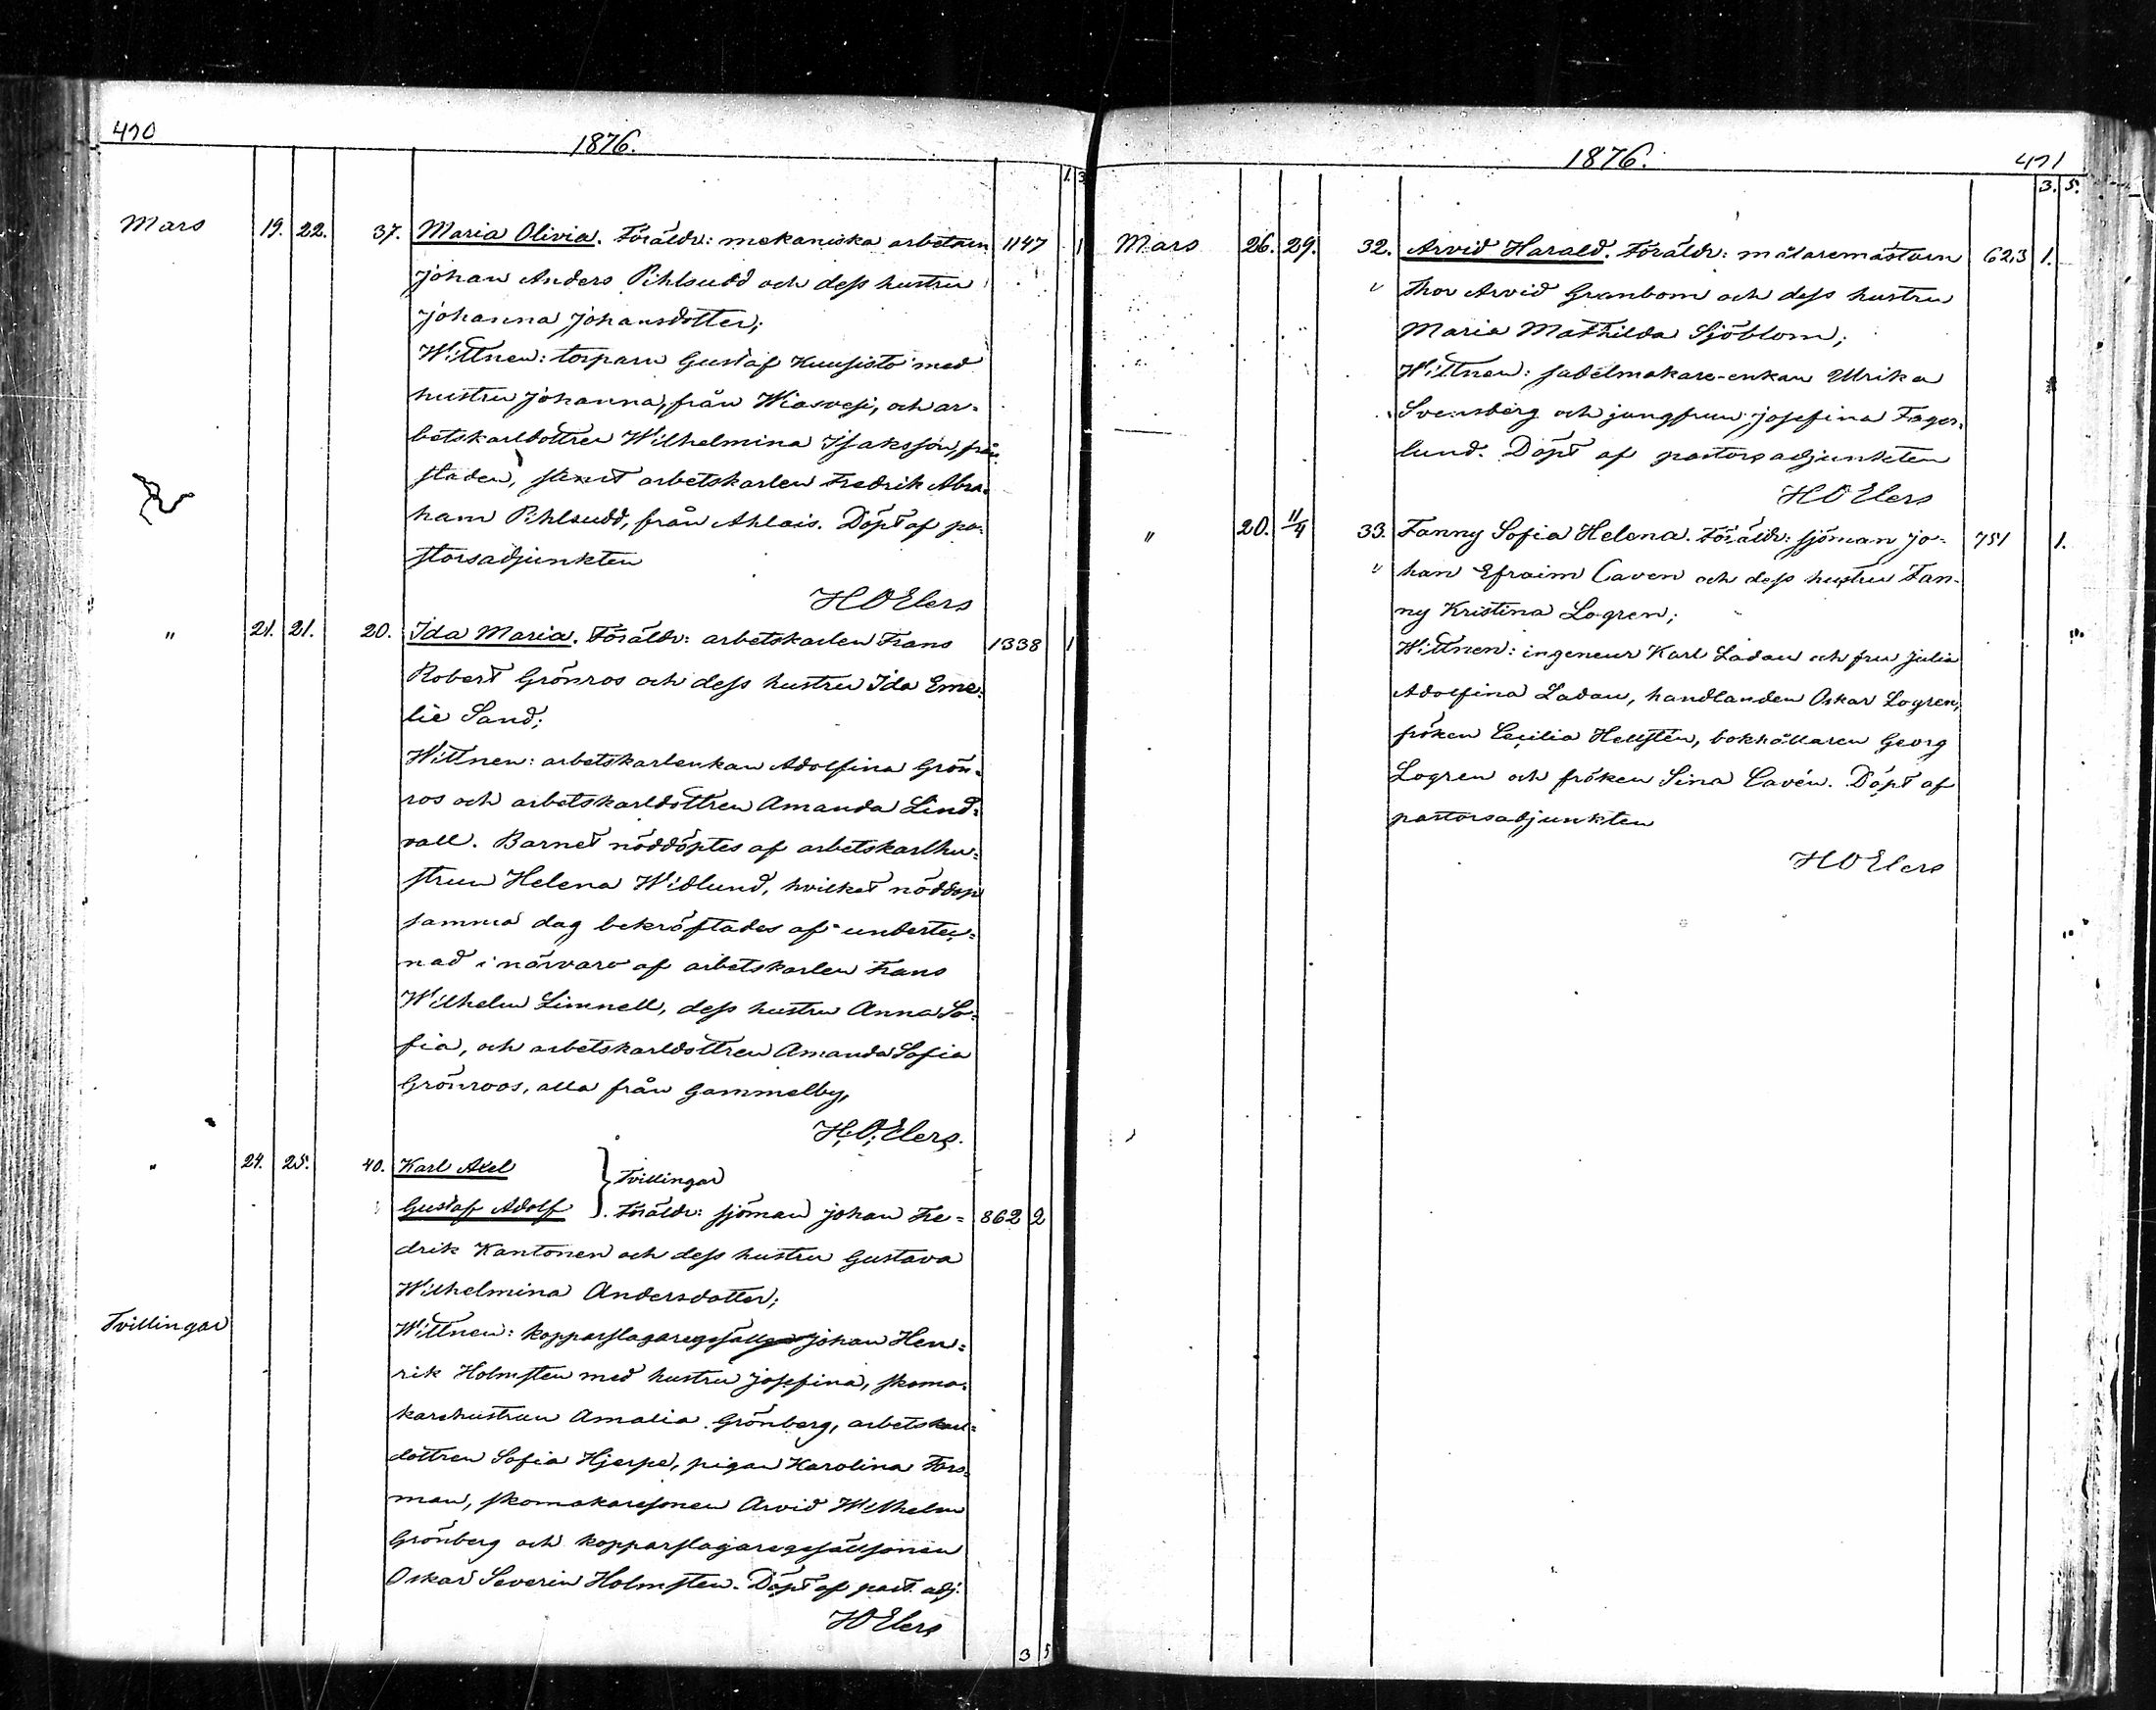 470
1876.
1. 3
Mars 19. 22. 37. Maria Olivia. Föräldr: mekaniska arbetaren 1147 1
Johan Anders Pihlsudd och dess hustru
Johanna Johansdotter;
Wittnen: torparn Gustaf Kuusisto med
hustru Johanna, från Wiasvesi, och ar-
betskarldottren Wilhelmina Isaksson, från
staden, samt arbetskarlen Fredrik Abra-
ham Pihlsudd, från Ahlais. Döpt af pa-
storsadjunkten
H O Elers
" 21. 21. 20. Ida Maria. Föräldr: arbetskarlen Frans 1338 1
Robert Grönros och dess hustru Ida Eme-
lie Sand;
Wittnen: arbetskarlenkan Adolfina Grön-
ros och arbetskarldottren Amanda Lind-
vall. Barnet nöddöptes af arbetskarlhu-
strun Helena Widlund, hvilket nöddop
samma dag bekräftades af underteck-
nad i närvaro af arbetskarlen Frans
Wilhelm Limnell, dess hustru Anna So-
fia, och arbetskarldottren Amanda Sofia
Grönroos, alla från Gammelby,
H. O. Elers.
" 24. 25. 40. Karl Axel } Tvillingar
Gustaf Adolf . Föräldr: sjöman Johan Fre- 862 2
drik Kantonen och dess hustru Gustava
Wilhelmina Andersdotter;
Tvillingar
Wittnen: kopparslagaregesäll Johan Hen-
rik Holmsten med hustru Josefina, skoma-
karehustrun Amalia Grönberg, arbetskarl-
dottren Sofia Hjerpe, pigan Karolina Fors-
man, skomakaresonen Arvid Wilhelm
Grönberg och kopparslagaregesällsonen
Oskar Severin Holmsten. Döpt af past. adj.
H O Elers
3 5
1876.
471
3. 5.
Mars 26. 29. 32. Arvid Harald. Föräldr: målaremästaren 623 1.
" Thor Arvid Granbom och dess hustru
Maria Mathilda Sjöblom;
Wittnen: sadelmakare-enkan Ulrika
Svensberg och jungfrun Josefina Fager-
lund. Döpt af pastorsadjunkten
H O Elers
" 20. 11/4 33. Fanny Sofia Helena. Föräldr: sjöman Jo- 751 1.
" han Efraim Caven och dess hustru Fan-
ny Kristina Logren;
Wittnen: ingeneur Karl Ladau och fru Julia
Adolfina Ladau, handlanden Oskar Logren,
fröken Cecilia Hellstén, bokhållaren Georg
Logren och fröken Sina Cavén. Döpt af
pastorsadjunkten
H O Elers